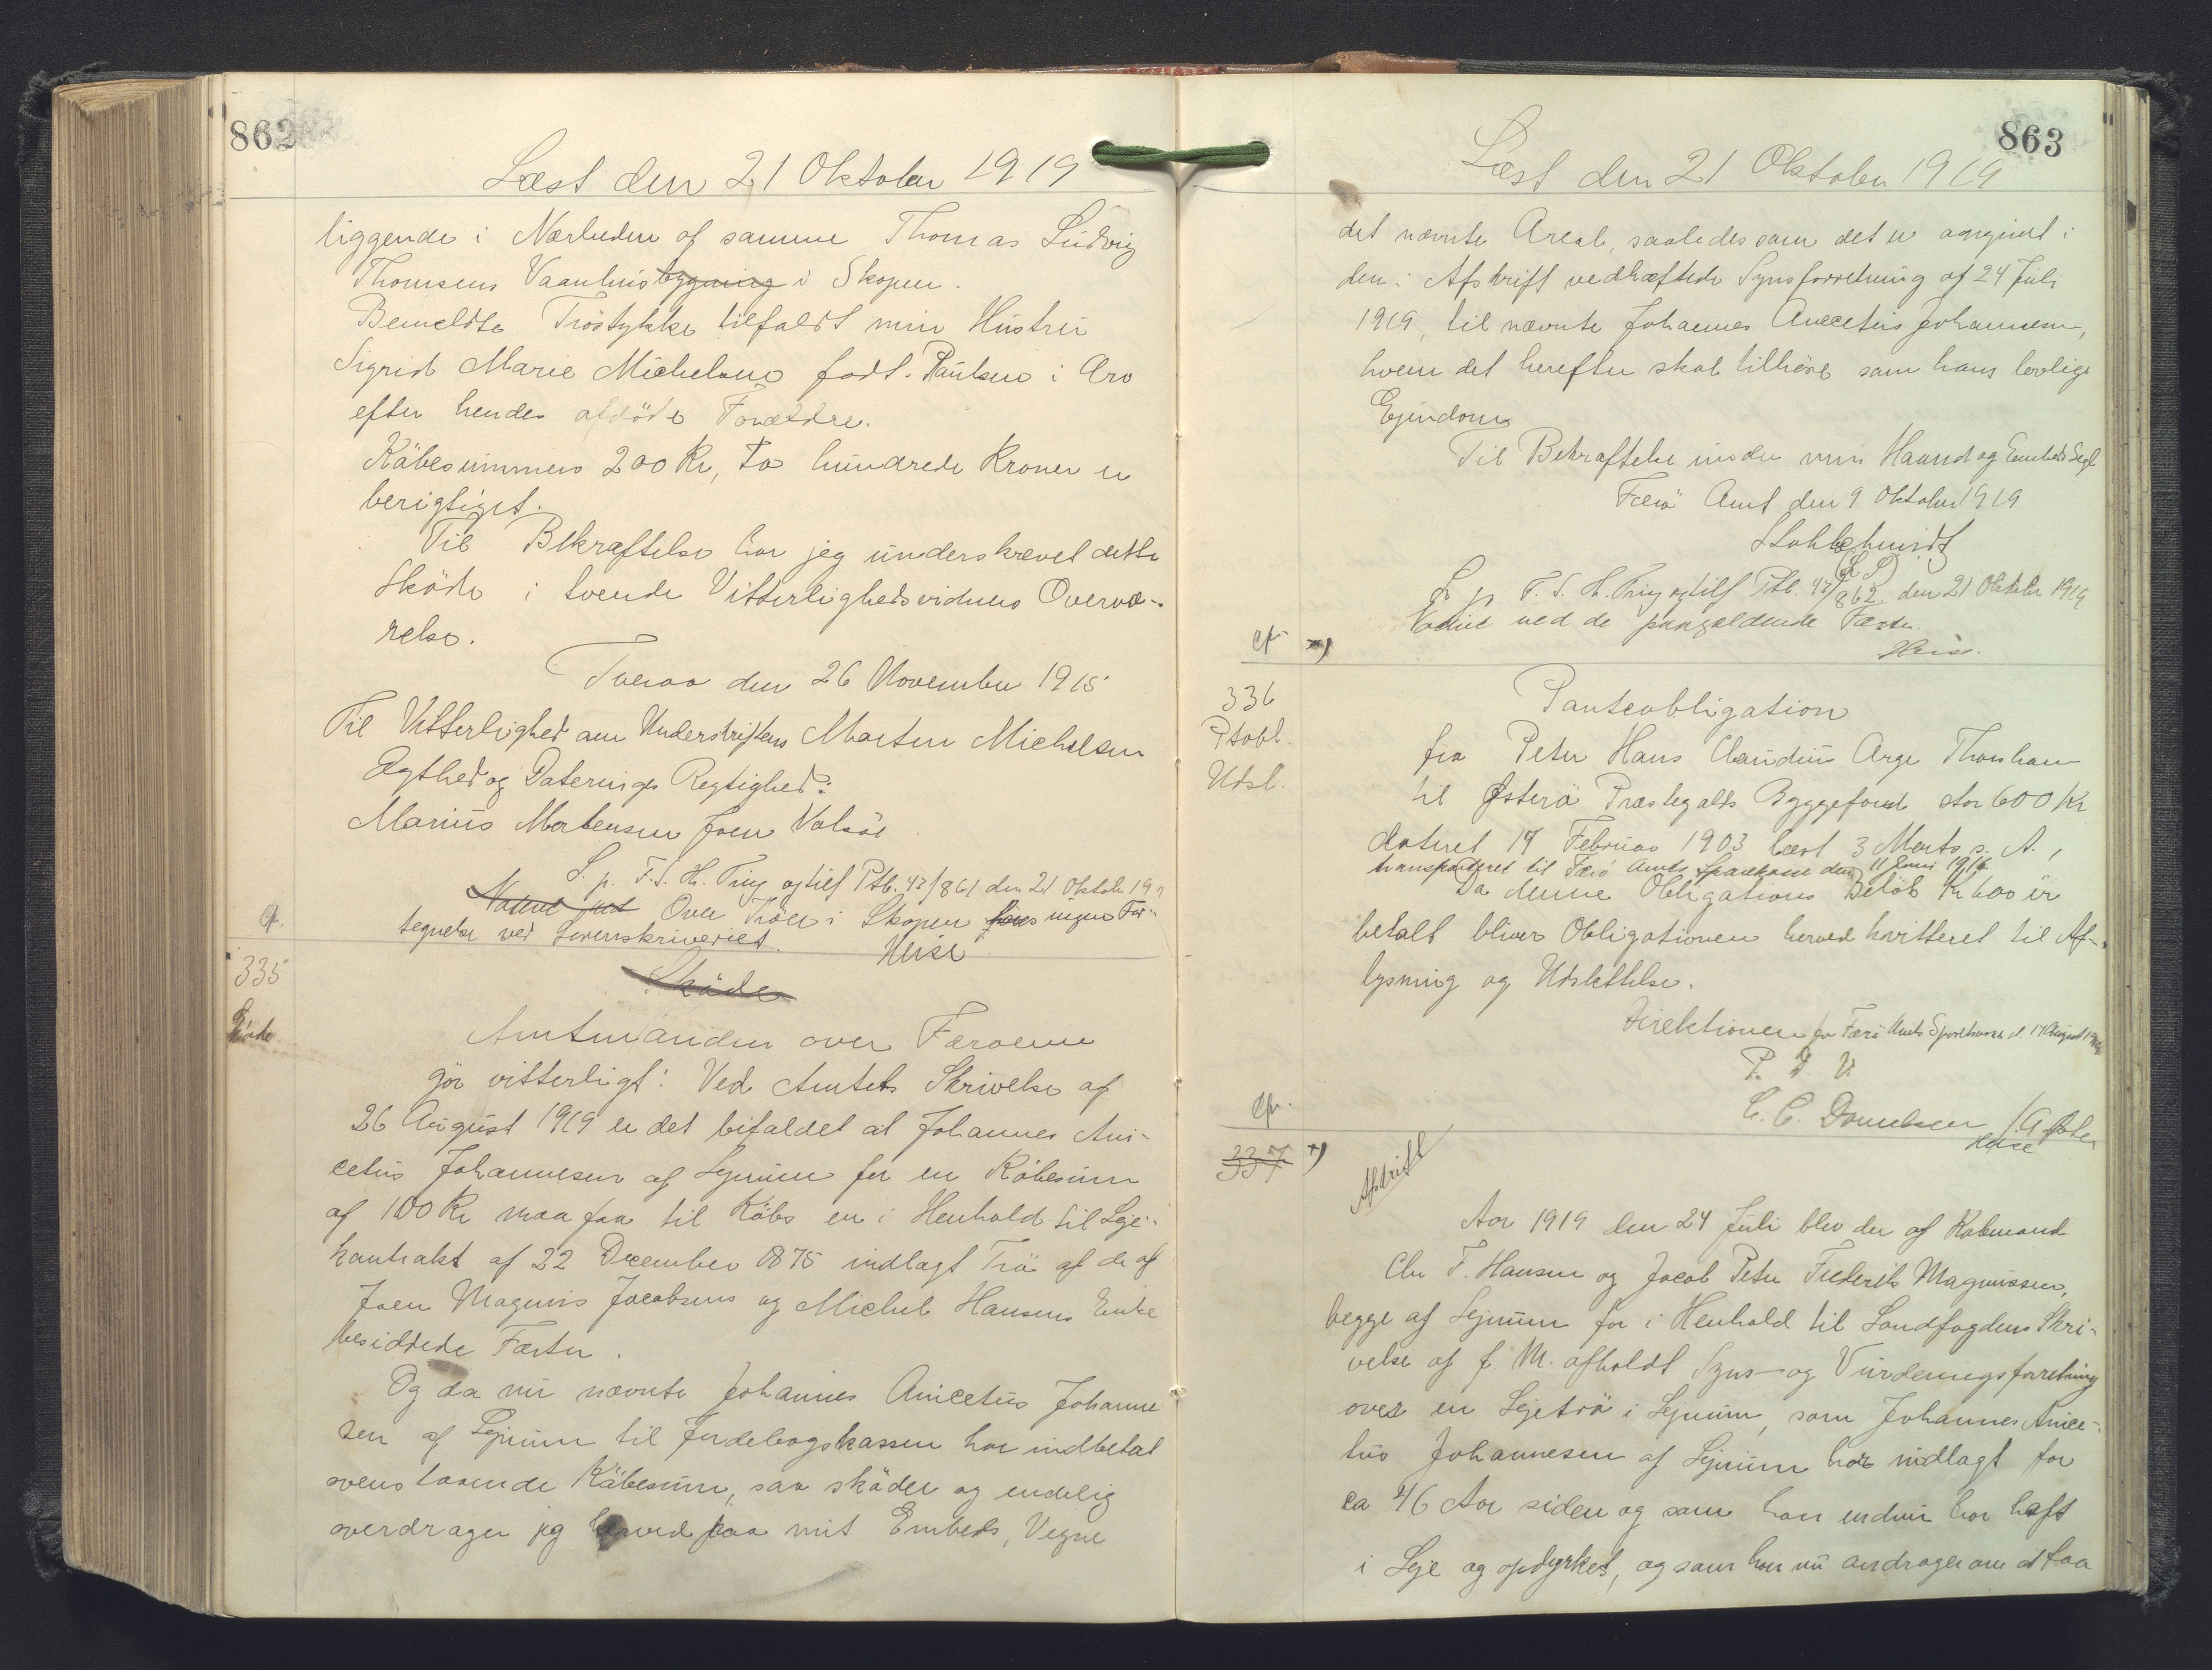 862
Læst den 21 Oktober 1919
liggende i Nærheden af samme Thomas Ludvig
Thomsens Vaanhusbygning i Skopen.
Bemeldte Tröstykke tilfaldt min Hustru
Sigrid Marie Michelsens födt Paulsen i Arv
efter hendes afdöde Forældre.
Köbesummen 200 Kr, to hundrede Kroner er
berigtiget.
Til Bekræftelse har jeg underskrevet dette
Sköde i tvende Vitterlighedsvidners Overvæ-
relse.
Tveraa den 26 November 1915
Til Vitterlighed om Underskriftens Morten Michelsen
Ægthed og Daterings Rigtighed:
Marius Mortensen Joen
L. p. F. S. H. Ting og tilf Ptb. 42/861 den 21 Oktob 19
Noteret ved Over Tröer i Skopen föres ingen For-
tegnelse ved Sorenskriveriet.
Heise
cfr.
335
Sköde
Sköde
Amtmanden over Færøerne
gör vitterligt: Ved Amtets Skrivelse af
26 August 1919 er det bifaldet at Johannes Ani-
cetus Johannesen af Lejnum for en Köbesum
af 100 Kr maa faa til Köbs en i Henhold til Leje-
kontrakt af 22 December 1875 indlagt Trö af de af
Joen Magnus Jacobsens og Michel Hansens Enke
besiddede Fæster.
Og da nu nævnte Johannes Anicetus Johanne
sen af Lejnum til Jordebogskassen har indbetalt
ovenstaaende Köbesum, saa sköder og endelig
overdrager jeg herved paa mit Embeds, Vegne
863
Læst den 21 Oktober 1919
det nævnte Areal, saaledes som det er angivet i
den i Afskrift vedhæftede Synsforretning af 24 Juli
1919, til nævnte Johannes Anecetus Johannesen,
hvem det herefter skal tilhöre som hans lovlige
Ejendom
Til Bekræftelse under min Haand og Embeds Segl
Færö Amt den 9 Oktober 1919
(L. S)
L. p. F. S. H. Ting og tilf Ptb. 42/862 den 21 Oktober 1919
Noteret ved de paagældende Fæster.
Heise.
cfr x)
336
Ptobl.
Udsl.
Panteobligation
fra Peter Hans Claudius Arge Thorshavn
til Østerö Præstegalds Byggefond stor 600 Kr
dateret 17 Februar 1903 læst 3 Marts s. A.,
transporteret til Færö Amts Sparekasse den 11 Juni 1916
Da denne Obligations Belöb Kr 600 er
betalt bliver Obligationen herved kvitteret til Af-
lysning og Udslettelse.
Direktionen for Færö Amts Sparekasse d. 17 August
P. D. V.
C. C. Danielsen
Heise
cfr.
337 x)
Afskrift
Aar 1919 den 24 Juli blev der af Købmand
Chr F. Hansen og Jacob Peter Frederik Magnussen,
begge af Lejnum for i Henhold til Landfogdens Skri-
velse af f. M. afholdt Syns- og Vurderingsforretning
over en Lejetrö i Lejnum, som Johannes Anice-
tus Johannesen af Lejnum har indlagt for
ca 46 Aar siden og som han endnu har haft
i Leje og opdyrket, og som han nu andrager om at faa